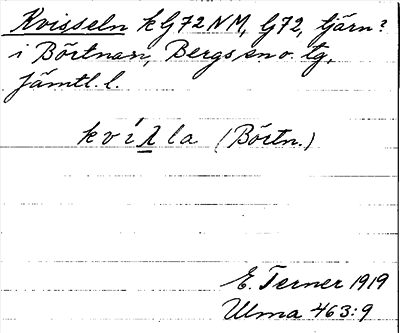 Kvisseln k G72NM, G72, tjärn?
i Börtnan, Bergs sn o. tg,
Jämtl. l.
kvíλla (Börtn.)
E. Terner 1919
Ulma 463:9